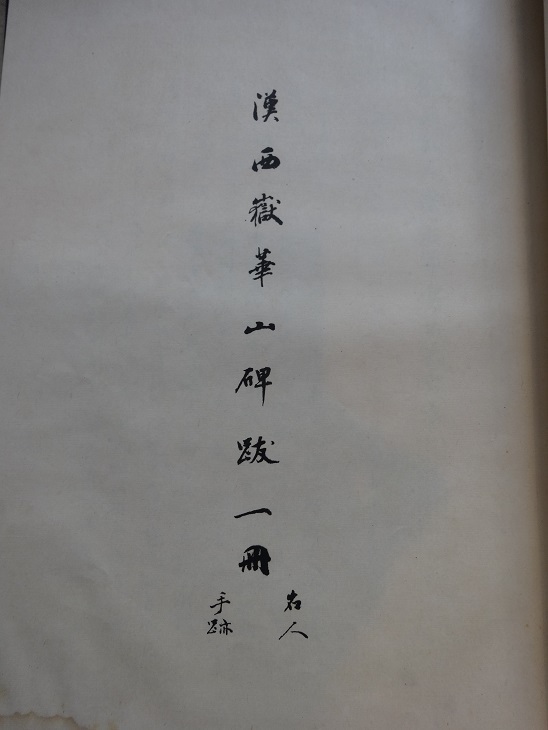 漢西嶽華山碑跋一冊
名人
手跡